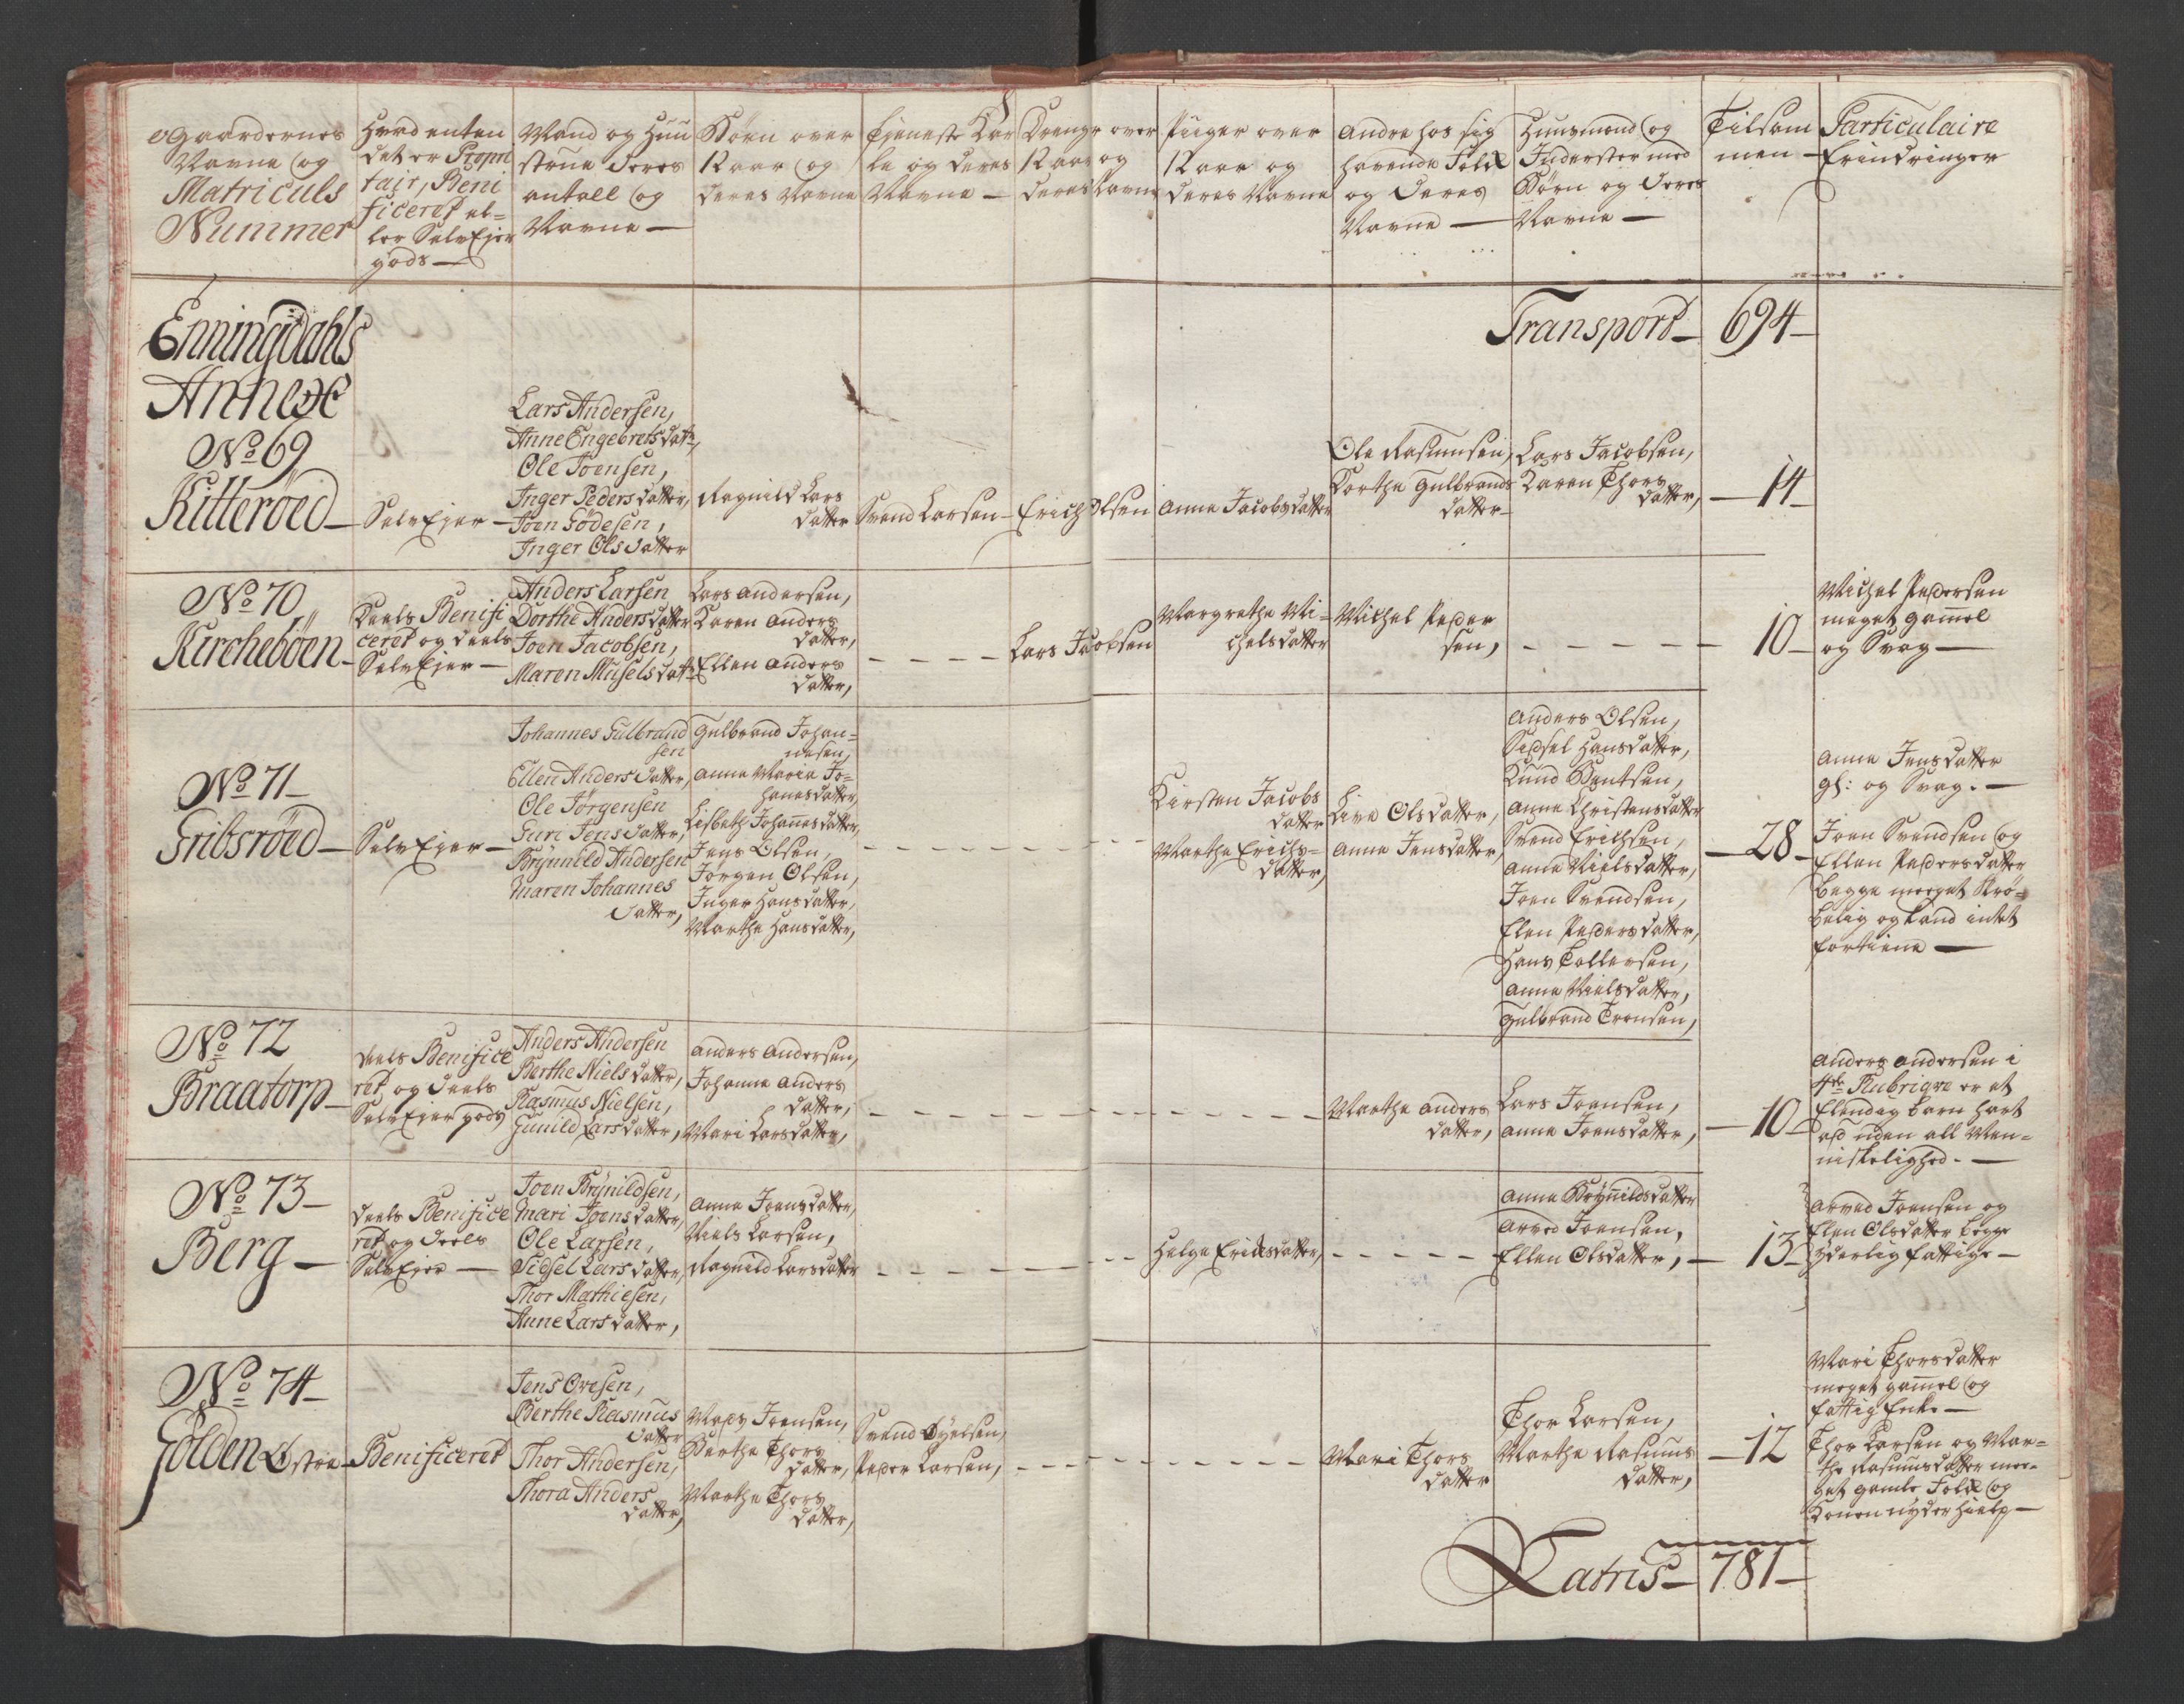 Gaardernes
Navne og
Matriculs
Nummer
Hvad enten
det er Propri
tair, Beni
ficeret el=
ler SelvEjer
gods —
Mand og Huu
strue deres
antall og
Navne —
Børn over
12 aar og
deres Navne
tjeneste Kar
le og deres
Navne —
Drenge over
12 aar og
deres Navne
Piiger over
12 aar og
deres Navne
Andre hos sig
havende Folk
og deres
Navne —
Huusmænd og
Inderster med
Børn og deres
Navne —
Tilsam
men —
Particulaire
Erindringer
Enningdahls
Annexe
Transport — 694 —
No 69
Kitteröed —
SelvEjer —
Lars Andersen,
Anne Engebrets datr,
Ole Joensen,
Inger Peders datter,
Joen Födesen,
Inger Ols datter
Ragnild Lars
datter
Svend Larsen —
Erich Olsen
Anne Jacobsdatter
Ole Rasmusen,
Dorthe Gulbrands
datter —
Lars Jacobsen,
Karen Thors
datter,
— 14 —
No 70
Kircheböen —
Deels Benifi
ceret og deels
SelvEjer —
Anders Larsen
Dorthe Anders datter
Joen Jacobsen,
Maren Musels datr
Lars Andersen,
Karen Anders
datter,
Ellen Anders
datter,
Lars Jacobsen
Margrethe Mi=
chelsdatter
Michel Peder
sen,
10 —
Michel Pedersen
meget gam̄el
og Svag —
No 71 —
Gribsröed —
SelvEjer —
Johannes Gulbrand
sen
Ellen Anders datter,
Ole Jörgensen
Guri Jens datter,
Brÿnnild Andersen
Maren Johannes
datter,
Gulbrand Johan=
nesen,
Anne Maria Jo=
hanesdatter,
Lisbeth Johan̄esdatter,
Jens Olsen,
Jörgen Olsen,
Inger Hansdatter,
Marthe Hansdatter,
Kirsten Jacobs
datter
Marthe Erichs=
datter,
Live Olsdatter,
Anne Jensdatter,
Anders Olsen,
Sidsel Hansdatter,
Knud Bentsen,
Anne Christensdatter
Svend Erichsen,
Anne Nielsdatter,
Joen Svendsen,
Elen Pedersdatter,
Hans Tollersen,
Anne Nielsdatter,
Gulbrand Trensen,
— 28 —
Anne Jensdatter
gl: og Svag. —
Joen Svendsen og
Ellen Pedersdatter
begge meeget Skrö=
belig og kand intet
fortiene —
No 72
Braatorp —
deels Benifice
ret og deels
SelvEjer gods
Anders Andersen
Berthe Niels datter,
Rasmus Nielsen,
Gunild Lars datter,
Anders Andersen,
Johanne Anders
datter,
Mari Larsdatter,
Marthe Anders
datter,
Lars Joensen,
Anne Joensdatter,
— 10 —
Anders Andersen i
4de Rubriqve er et
Elendig barn hart
ad uden all Men=
niskelighed. —
No 73 —
Berg —
deels Benifice
ret og deels
SelvEjer —
Joen Brÿnildsen,
Mari Joens datter,
Ole Larsen,
Sidsel Lars datter,
Thor Mathiesen,
Anne Lars datter,
Anne Joensdatter,
Niels Larsen,
Ragnild Larsdatter
Helge Ericksdatter,
Anne Brÿnildsdatter
Arved Joensen,
Ellen Olsdatter,
— 13 —
Arved Joensen og
Elen Olsdatter begge
Yderlig fattige —
No 74 —
Gölden Østre —
Benificeret
Jens Ovesen,
Berthe Rasmus
datter
Thor Andersen,
Thora Anders
datter,
Mads Joensen,
Berthe Thors
datter,
Marthe Thors
datter,
Svend
Peder Larsen,
Mari Thors
datter
Thor Larsen,
Marthe Rasmus
datter,
— 12
Mari Thorsdatter
meget gam̄el og
fattig Enke —
Thor Larsen og Mar=
the Rasmusdatter mee=
get gamle Folk og
Konen nyder hielp —
Latris — 781 —